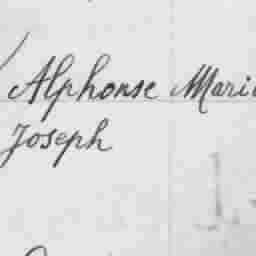 Alphonse Marie
Joseph